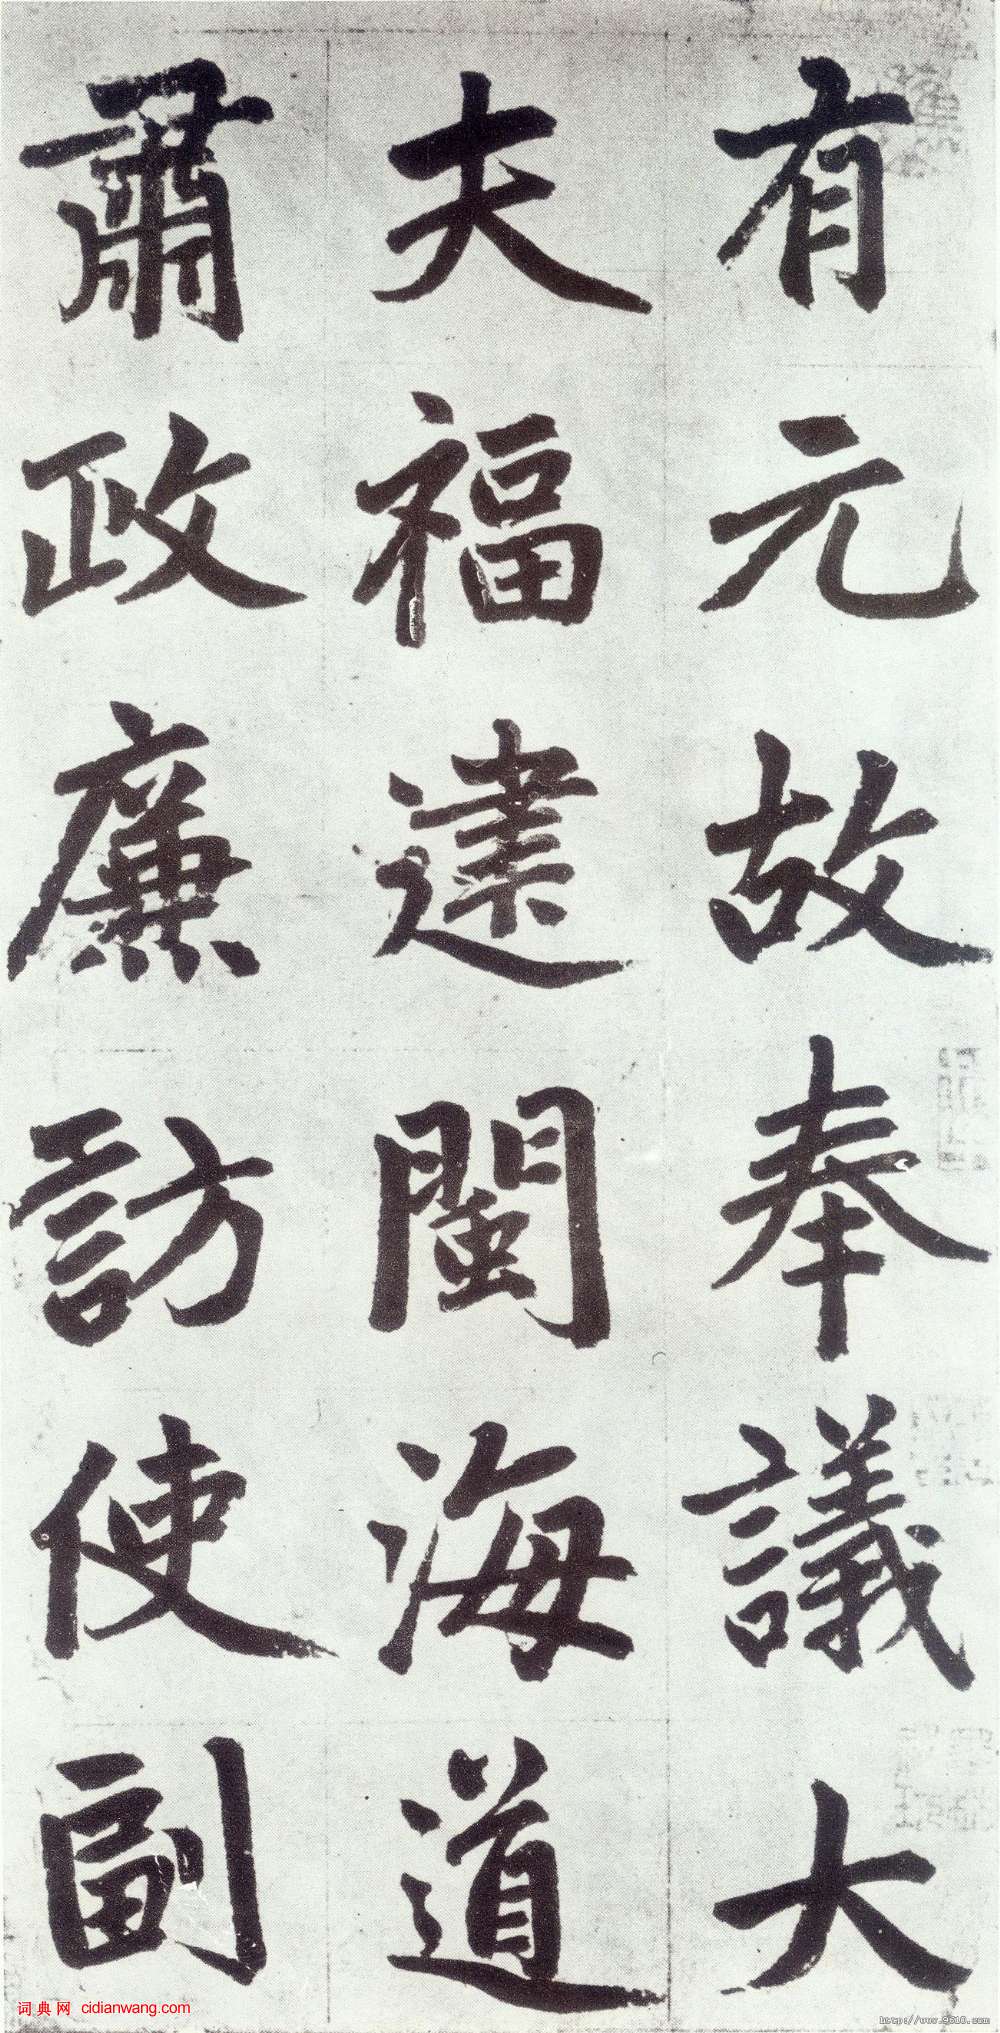 有元故奉議大
夫福建閩海道
肅政廉訪使副
词典网 cidianwang.com
http://www.9610.com